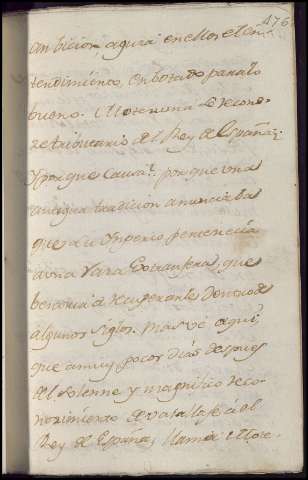 476
ambicion, agusa en ellos el en-
tendimiento, embotado para lo
bueno. Motezuma se recono-
ze tributario del Rey de España;
y por que causa? porque una
antigua tradicion anunciaba
que su Ymperio pertenecia
a una Raza Extrangera, que
bendria a recuperarle dentro de
algunos siglos. Mas ve aqui,
que a muy pocos dias despues
del solenne y magnifico reco-
nozimiento de vasallaje á el
Rey de España, llama Mote-